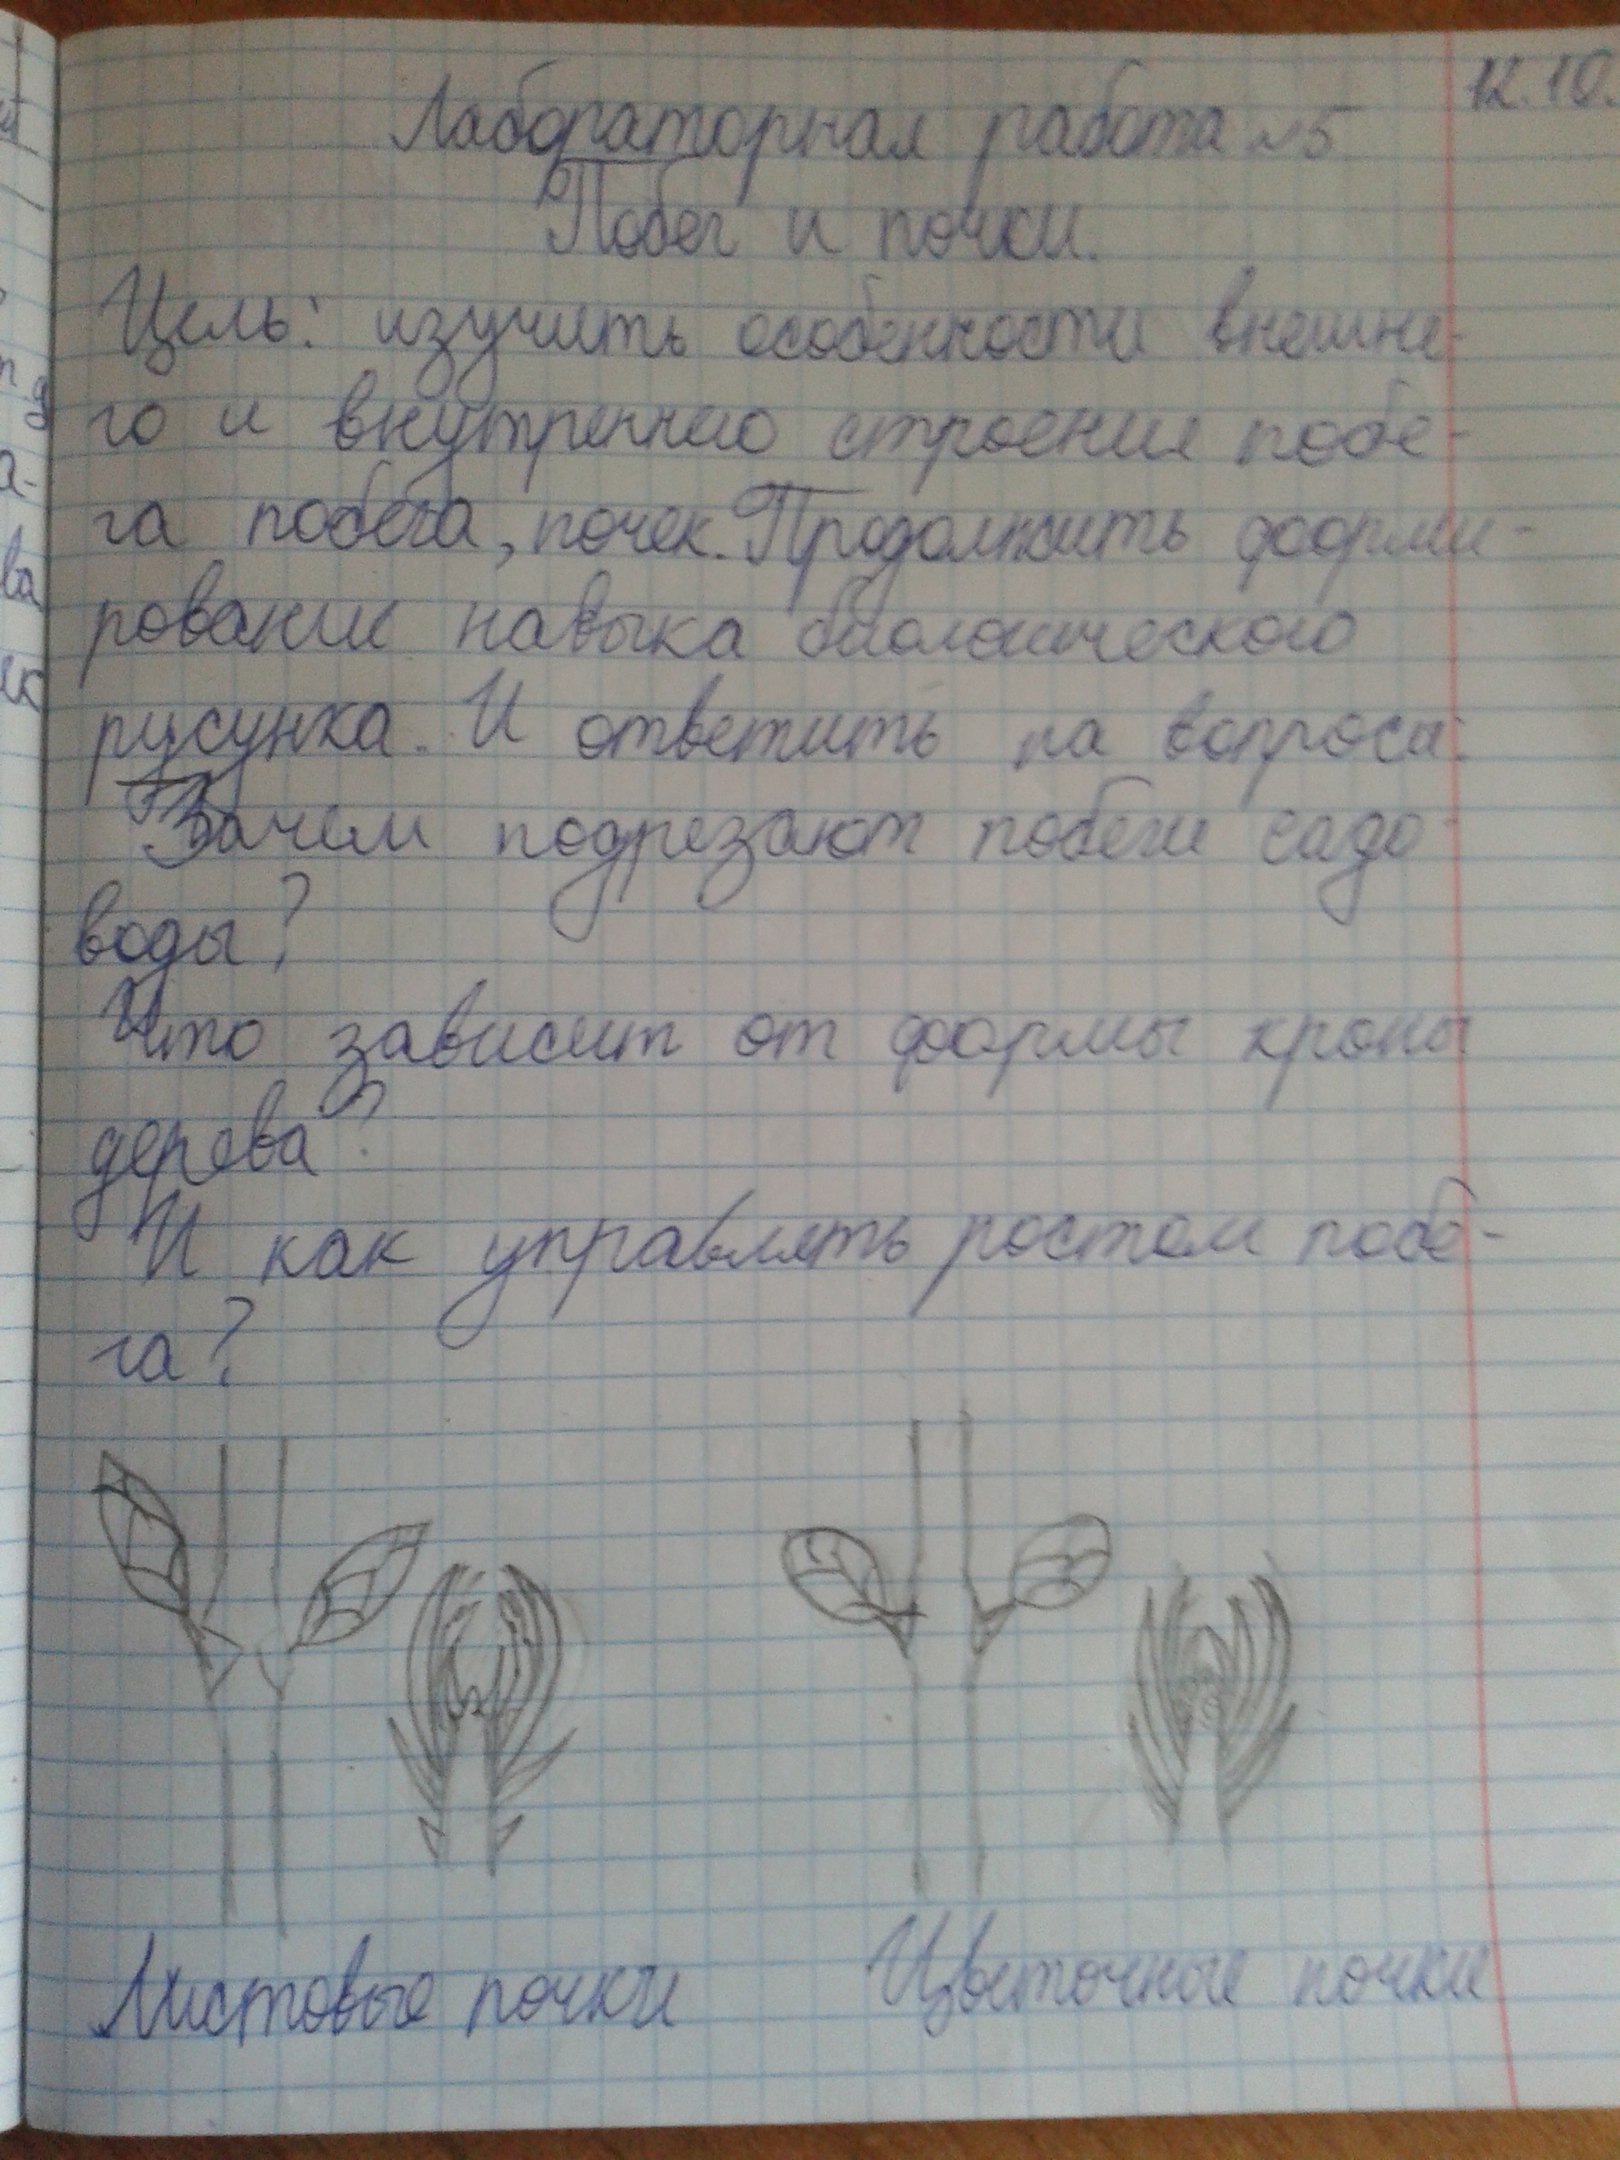 12.10.
Лабораторная работа №5
Побег и почки.
Цель: изучить особенности внешне-
го и внутреннго строения побе-
га побега, почек. Продолжить форми-
рование навыка биологического
русунка. И ответить на вопросы:
Зачем подрезают побеги садо-
воды?
Что зависит от формы кроны
дерева?
И как управлять ростом побе-
га?
Листовые почки
Цветочные почки